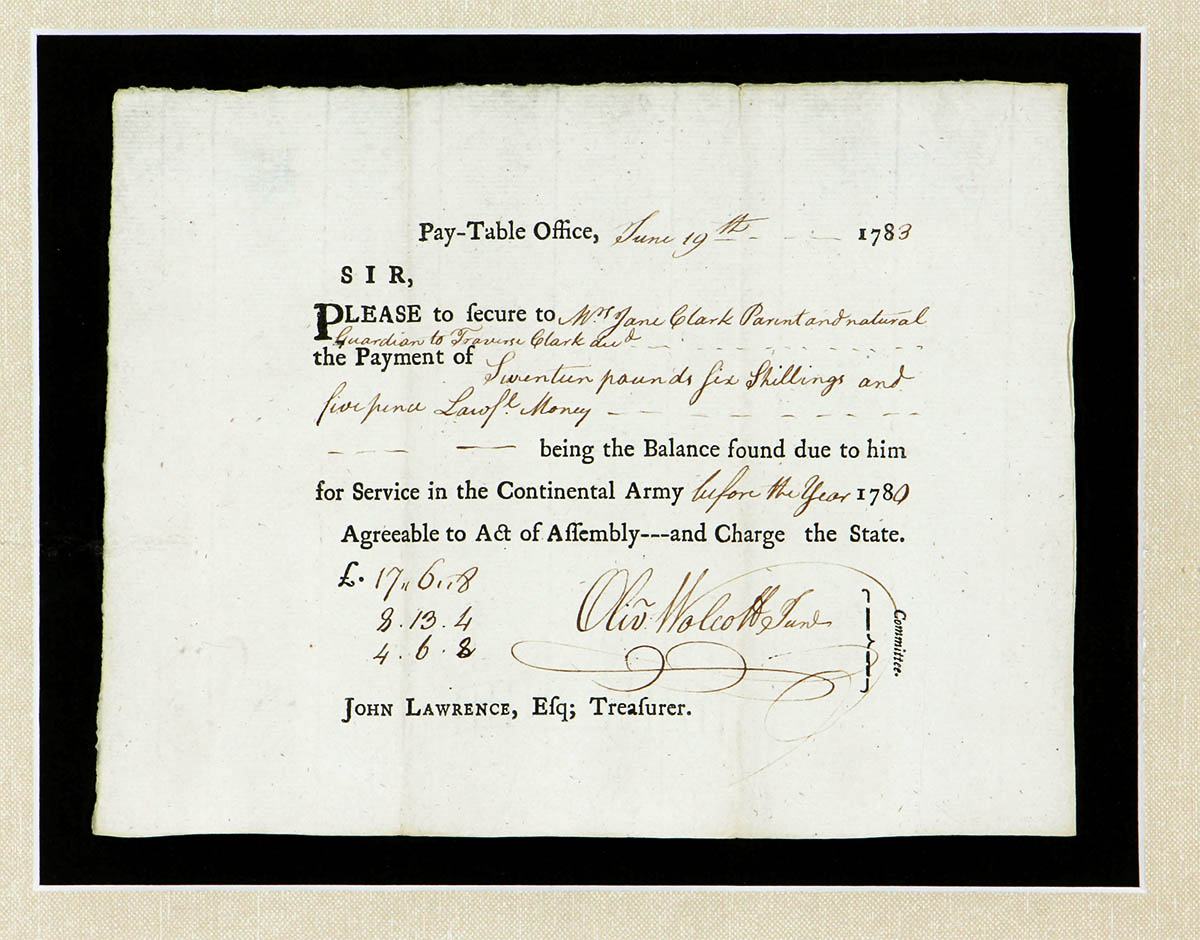 Pay-Table Office, June 19th 1783
SIR,
PLEASE to ſecure to Mrs Jane Clark Parent and natural
Guardian to Traverse Clark decd
the Payment of Seventeen pounds Six Shillings and
five pence Lawfl Money
being the Balance found due to him
for Service in the Continental Army before the Year 1780
Agreeable to Act of Aſſembly---and Charge the State.
£. 17 " 6 " 8
8 . 13 . 4
4 . 6 . 8
Olivr Wolcott Junr
Committee.
JOHN LAWRENCE, Eſq; Treaſurer.